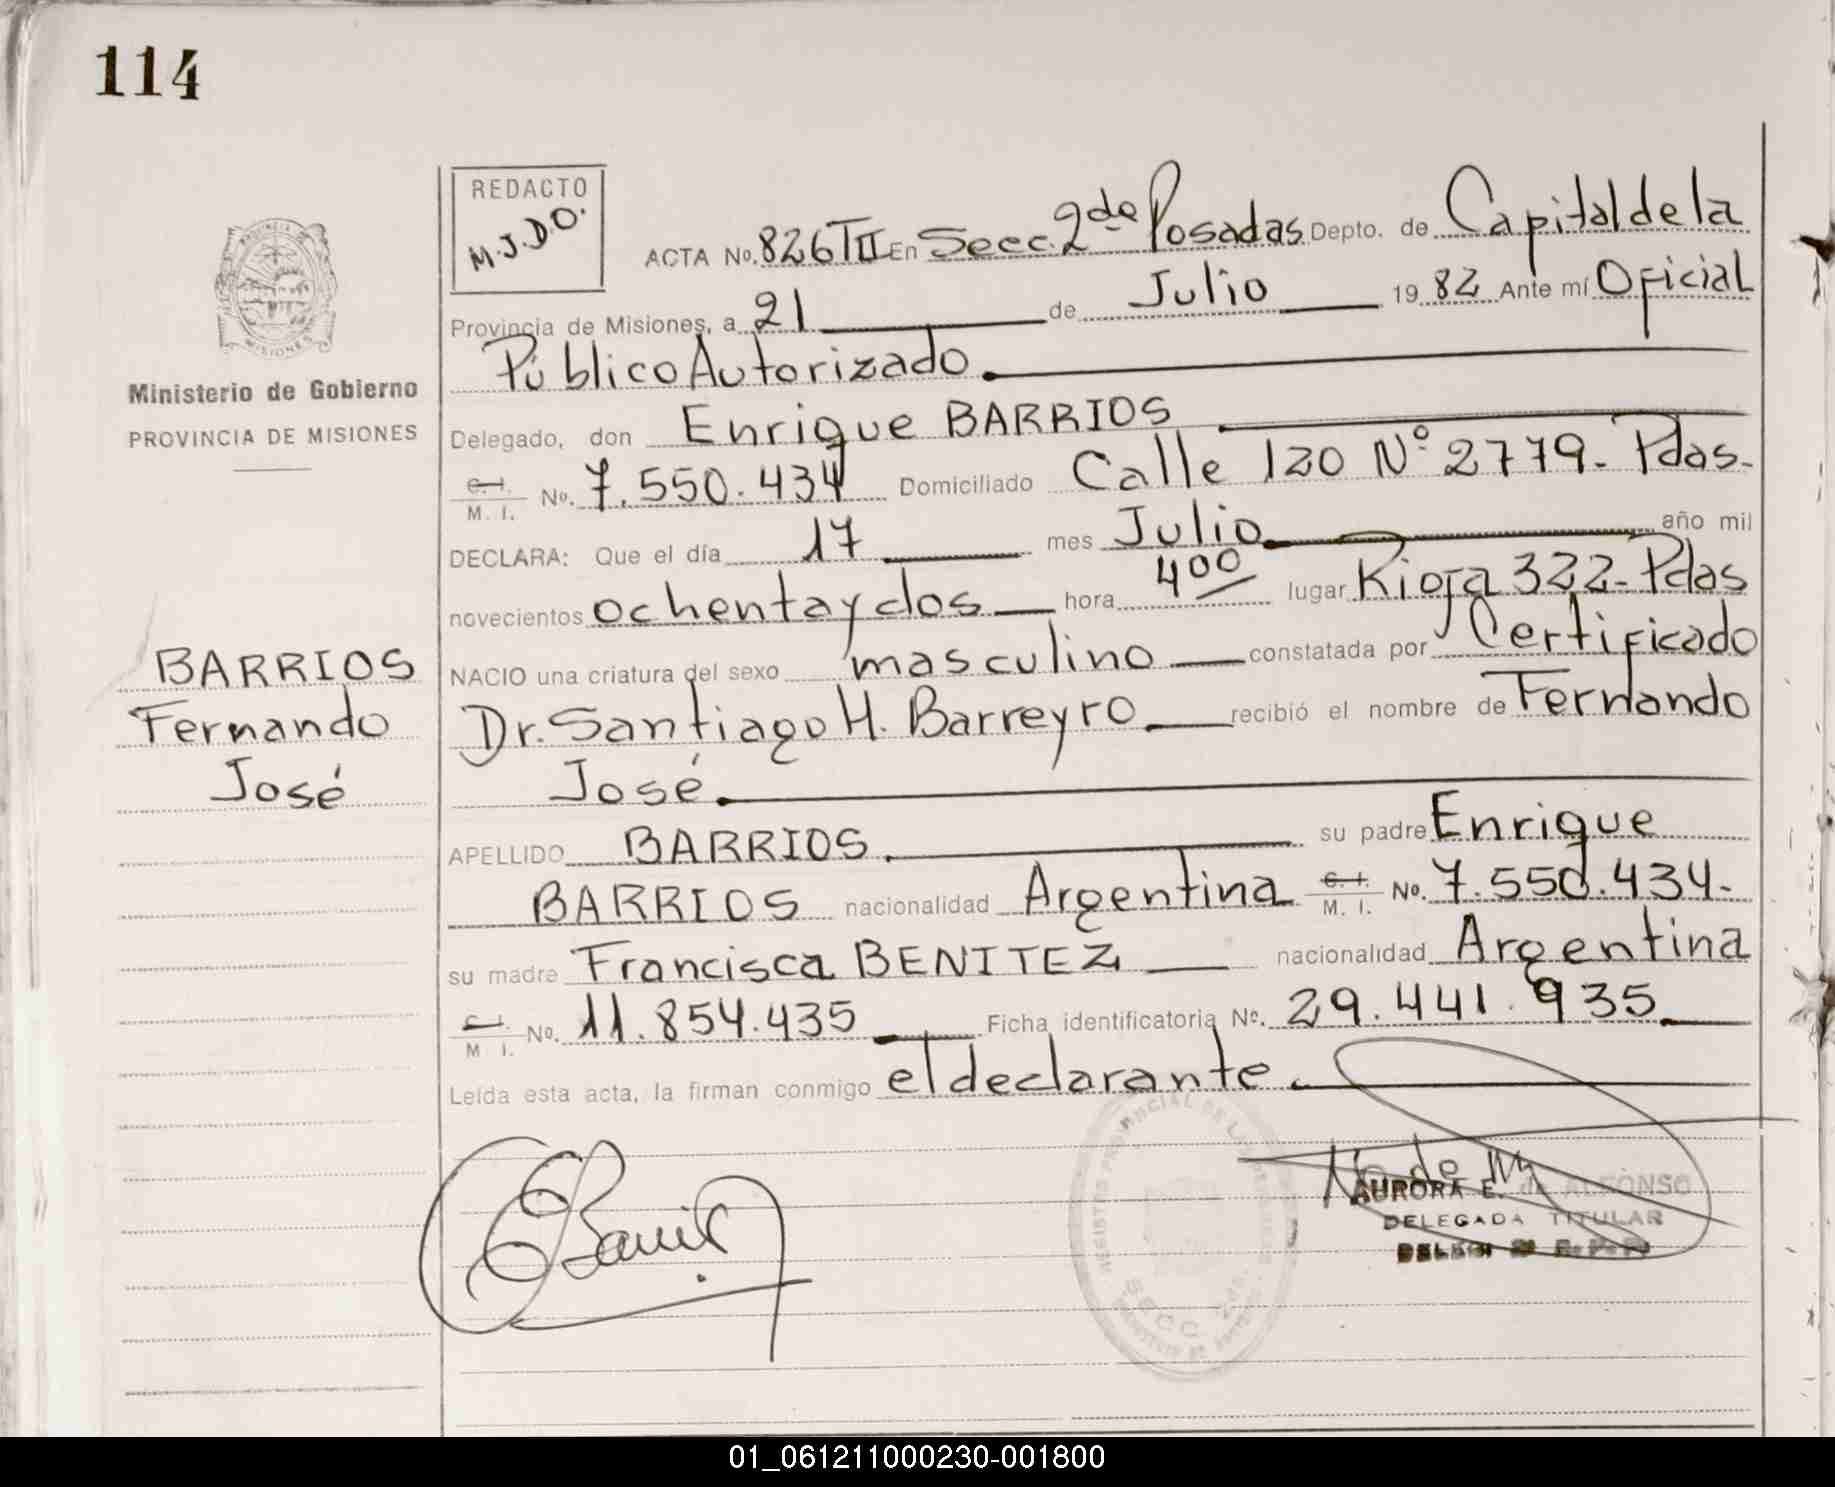 114
REDACTO
M.J.D.O.
ACTA No. 826 TII En Secc. 2da Posadas Depto. de Capital de la
Provincia de Misiones, a 21 de Julio 1982 Ante mí Oficial
Público Autorizado.
Ministerio de Gobierno
PROVINCIA DE MISIONES
Delegado, don Enrique BARRIOS
C. I.
M. I. No. 7.550.434 Domiciliado Calle 120 N° 2779- Pdas-
DECLARA: Que el día 17 mes Julio año mil
novecientos ochenta y dos hora 4 00 lugar Rioja 322- Pdas
NACIO una criatura del sexo masculino constatada por Certificado
Dr. Santiago H. Barreyro recibió el nombre de Fernando
José.
BARRIOS
Fernando
José
APELLIDO BARRIOS. su padre Enrique
BARRIOS nacionalidad Argentina C. I. M. I. No. 7.550.434-
su madre Francisca BENITEZ nacionalidad Argentina
C. I.
M. I. No. 11.854.435 Ficha identificatoria No. 29.441.935
Leída esta acta, la firman conmigo el declarante.
EBarrios
AURORA E. de ALFONSO
DELEGADA TITULAR
REGISTRO PROVINCIAL DE LAS PERSONAS
SECC 2da.
MISIONES
01_061211000230-001800